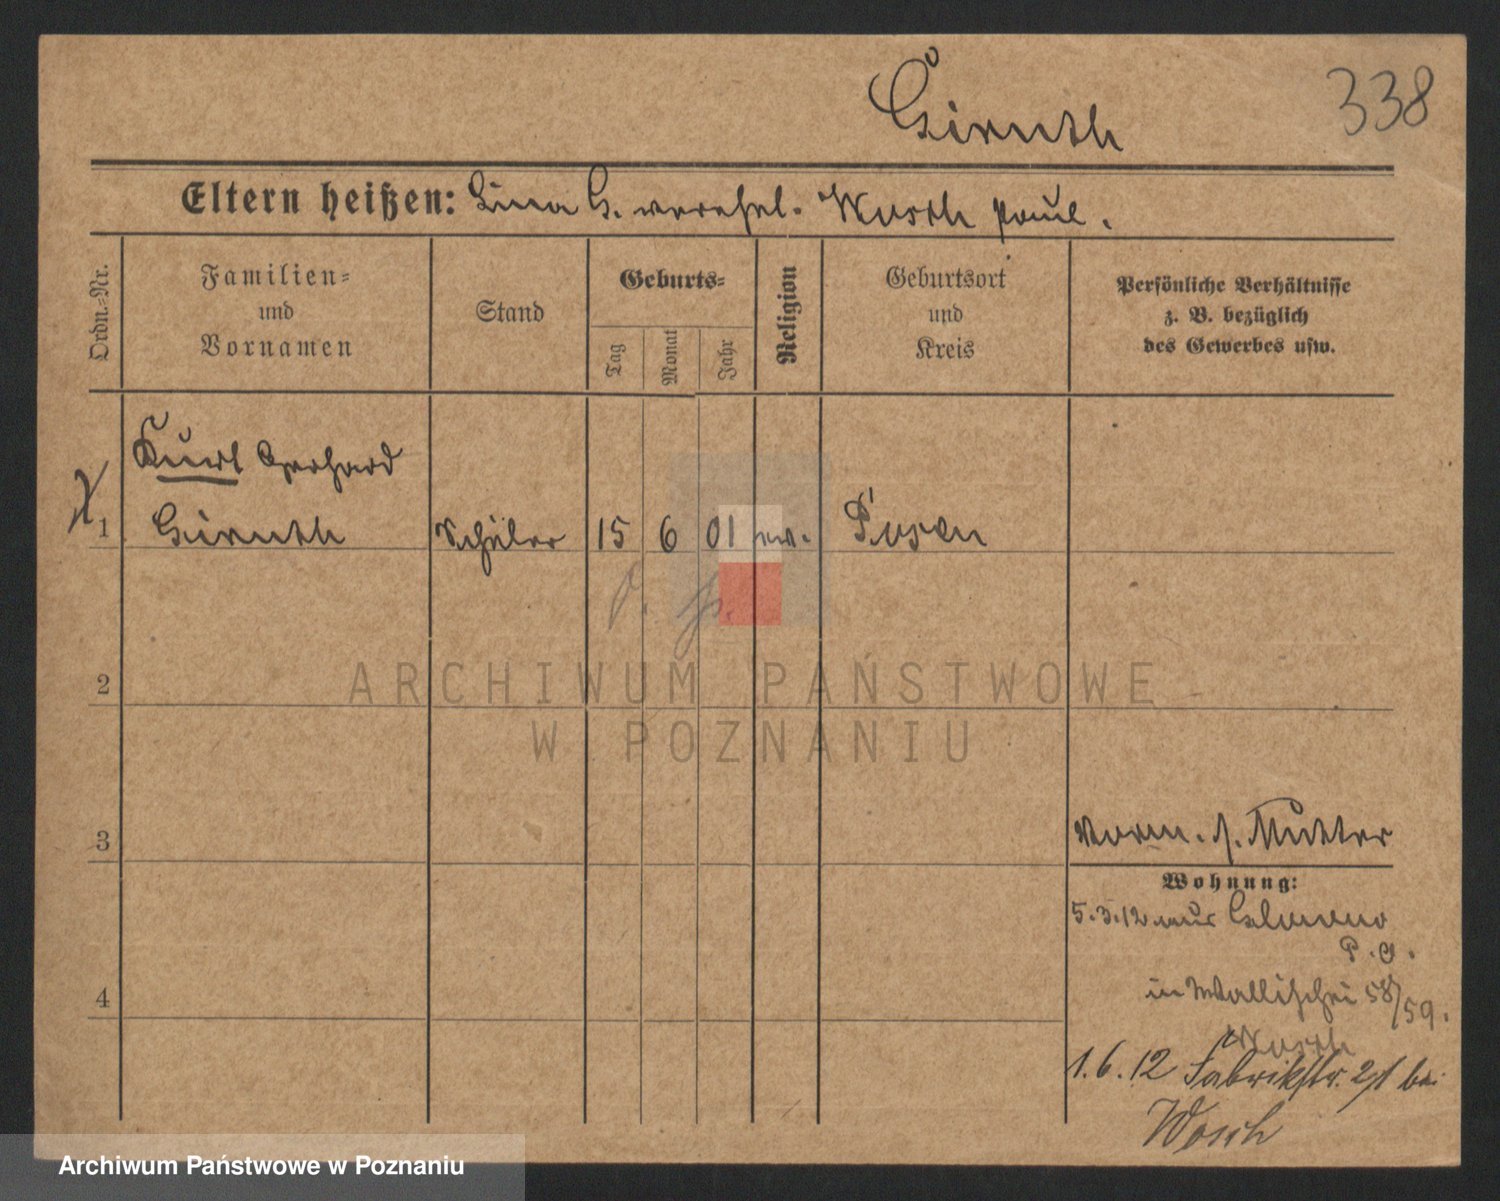 Giruth
338
Eltern heißen: Lina G. verehel. Wosch Paul.
Ordn.-Nr.
Familien-
und
Vornamen
Stand
Geburts-
Tag
Monat
Jahr
Religion
Geburtsort
und
Kreis
Persönliche Verhältnisse
z. B. bezüglich
des Gewerbes usw.
Kurt Gerhard
1 Giruth Schüler 15 6 01 ev. Posen
2
3
4
Vorm. s. Mutter
Wohnung:
5.3.12 aus
P.O.
in Wallischei 58/59.
Wosch
1.6.12 Fabrikstr. bei
Wosch
ARCHIWUM PAŃSTWOWE
W POZNANIU
Archiwum Państwowe w Poznaniu